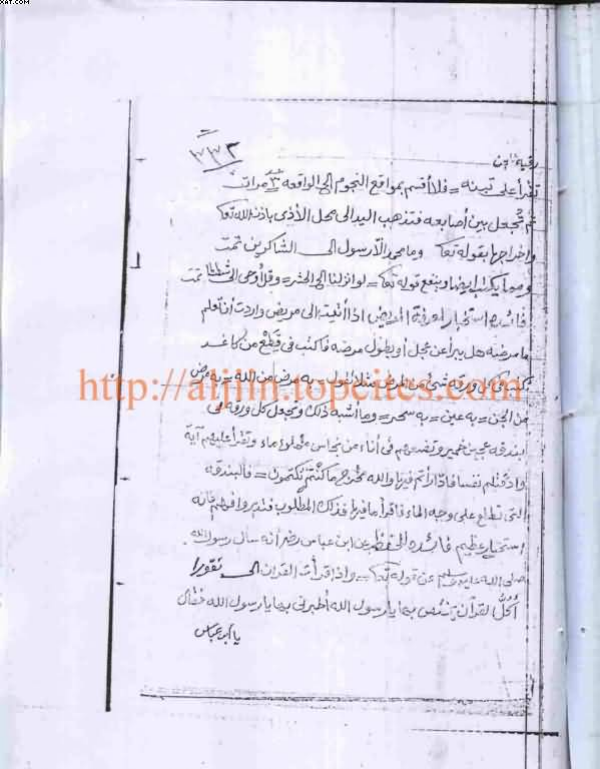 xat.com
٣٣٢
تقرأ على تينه = فلا أقسم بمواقع النجوم الى الواقعة مرات
ثم تجعل بين أصابعه فتذهب اليد الى محل الأذى باذن الله تعا
واخراجها بقوله تعا وما محمد الا رسول الى الشاكرين تمت
ومما يكتب ايضا وينفع قوله تعا = لو انزلنا الى الحشر = وقل أوحى الى شططا تمت
فائده استخبار لمعرفة المريض اذا أتيت الى مريض واردت أن تعلم
ما مرضه هل يبرأ عن عجل أو يطول مرضه فاكتب فى قطع من كاغد
كل ورقه شئ من المرض مثلا تقول = به مرض من الله = به مرض
من الجن = به عين = به سحر = وما أشبه ذلك وتجعل كل ورقه فى
بندقه عجين خمير وتضعهم فى أناء من نحاس مملوا ماء وتقرأ عليهم آية
واذ قتلتم نفسا فادارأتم فيها والله مخرج ما كنتم تكتمون = فالبندقه
التى تطلع على وجه الماء فاقرأ ما فيها فذلك المطلوب فتدبر وافهم فانه
استخبار عظيم فائده لحفظ عن ابن عباس رضى انه سال رسول الله
صلى الله عليه وسلم عن قوله تعا = واذا قرأت القران الى نفورا
أكل القرآن يارسول الله أخبرنى بها يارسول الله فقال
يا ابن عباس
http://aljin.topcites.com